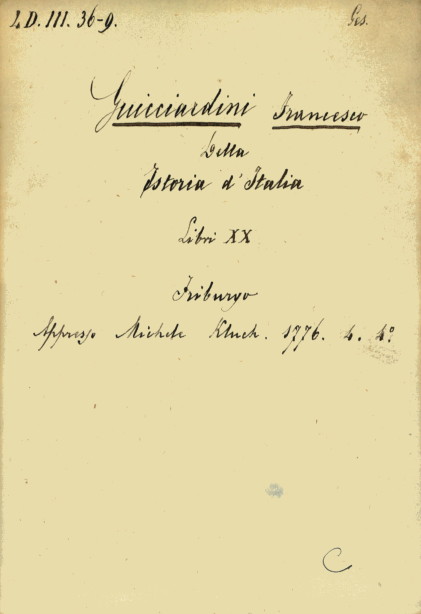 L.D. III. 36-9.
Ges.
Guicciardini Francesco
Della
Istoria d'Italia
Libri XX
Friburgo
Appresso Michele Kluch. 1776. 4. 4º.
C